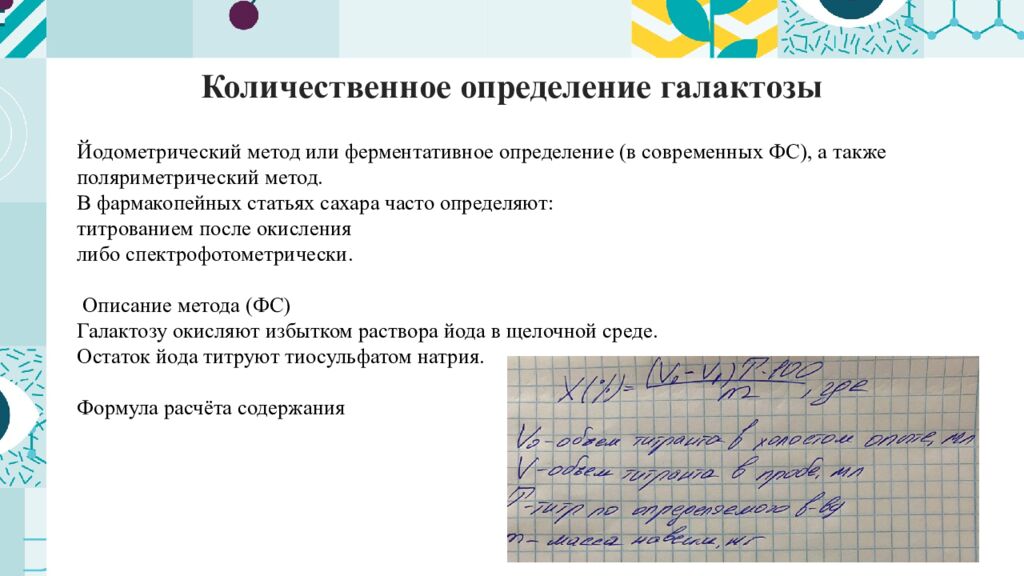 Количественное определение галактозы
Йодометрический метод или ферментативное определение (в современных ФС), а также
поляриметрический метод.
В фармакопейных статьях сахара часто определяют:
титрованием после окисления
либо спектрофотометрически.
Описание метода (ФС)
Галактозу окисляют избытком раствора йода в щелочной среде.
Остаток йода титруют тиосульфатом натрия.
Формула расчёта содержания
X(%)= (V₀-V₁)T·100 / m, где
V₀-объем титранта в холостом опыте, мл
V-объем титранта в пробе, мл
T-титр по определяемого в-ву
m- масса навески, мг